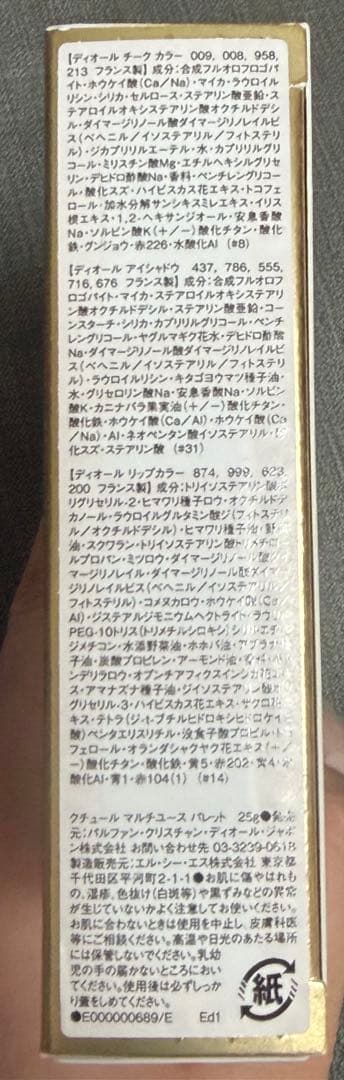 【ディオール チーク カラー 009, 008, 958,
213 フランス製】成分：合成フルオロフロゴパ
イト・ホウケイ酸(Ca/Na)・マイカ・ラウロイル
リシン・シリカ・セルロース・ステアリン酸亜鉛・
ステアロイルオキシステアリン酸オクチルドデシ
ル・ダイマージリノール酸ダイマージリノレイルビ
ス(ベヘニル/イソステアリル/フィトステリ
ル)・ジカプリリルエーテル・水・カプリリルグリ
コール・ミリスチン酸Mg・エチルヘキシルグリセ
リン・デヒドロ酢酸Na・香料・ペンチレングリコー
ル・酸化スズ・ハイビスカス花エキス・トコフェ
ロール・加水分解サンシキスミレエキス・イリス
根エキス・1,2-ヘキサンジオール・安息香酸
Na・ソルビン酸K(+/−)酸化チタン・酸化
鉄・グンジョウ・赤226・水酸化Al (#8)
【ディオール アイシャドウ 437, 786, 555,
716,676 フランス製】成分：合成フルオロフ
ロゴパイト・マイカ・ステアロイルオキシステアリ
ン酸オクチルドデシル・ステアリン酸亜鉛・コー
ンスターチ・シリカ・カプリリルグリコール・ペンチ
レングリコール・ヤグルマギク花水・デヒドロ酢酸
Na・ダイマージリノール酸ダイマージリノレイルビス
(ベヘニル/イソステアリル/フィトステリ
ル)・ラウロイルリシン・キタゴヨウマツ種子油・
水・グリセロリン酸Na・安息香酸Na・ソルビン
酸K・カニナバラ果実油(+/−)酸化チタン・
酸化鉄・ホウケイ酸(Ca/Al)・ホウケイ酸(Ca
/Na)・Al・ネオペンタン酸イソステアリル・酸
化スズ・ステアリン酸 (#31)
【ディオール リップカラー 874, 999, 623,
200 フランス製】成分：トリイソステアリン酸ポ
リグリセリル-2・ヒマワリ種子ロウ・オクチルドデ
カノール・ラウロイルグルタミン酸ジ(フィトステリ
ル/オクチルドデシル)・ヒマワリ種子油・野菜
油・スクワラン・トリイソステアリン酸トリメチロー
ルプロパン・ミツロウ・ダイマージリノール酸ダイ
マージリノレイル・ダイマージリノール酸ダイマー
ジリノレイルビス(ベヘニル/イソステアリル/
フィトステリル)・コメヌカロウ・ホウケイ酸(Ca/
Al)・ジステアルジモニウムヘクトライト・ラウリル
PEG-10トリス(トリメチルシロキシ)シリルエチル
ジメチコン・水添野菜油・ホホバ油・アブラナ種
子油・炭酸プロピレン・アーモンド油・香料・
ンデリラロウ・オプンチアフィクスインジカ花エキ
ス・アマナズナ種子油・ジイソステアリン酸ポリ
グリセリル-3・ハイビスカス花エキス・ザクロ花エ
キス・テトラ(ジ-t-ブチルヒドロキシヒドロケイヒ
酸)ペンタエリスリチル・没食子酸プロピル・トコ
フェロール・オランダシャクヤク花エキス(+/
−)酸化チタン・酸化鉄・黄5・赤202・黄4・水
酸化Al・青1・赤104(1) (#14)
クチュール マルチユース パレット 25g●発売
元：パルファン・クリスチャン・ディオール・ジャポ
ン株式会社 お問い合わせ先 03-3239-0618
製造販売元：エル・シー・エス株式会社 東京都
千代田区平河町2-1-1●お肌に傷やはれも
の、湿疹、色抜け(白斑等)や黒ずみなどの異常
が生じていないかよく注意してお使いください。
お肌に合わないときは使用を中止し、皮膚科医
等にご相談ください。高温や日光のあたる場所
には保管しないでください。乳幼
児の手の届かないところにおい
てください。使用後は必ずしっか
り蓋をしめてください。
●E000000689/E Ed1
紙